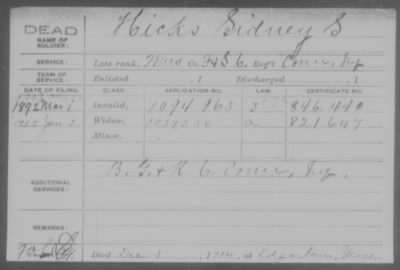 DEAD Hicks Sidney S
NAME OF SOLDIER:
SERVICE: Late rank, Mus Co. F&S 6, Reg't Conn, Inf
TERM OF SERVICE: Enlisted , 1 Discharged , 1
DATE OF FILING. CLASS. APPLICATION NO. LAW. CERTIFICATE NO.
1892 Mar 1 Invalid, 1094963 J 846.440
Jan 2 Widow, a 821,647
Minor,
ADDITIONAL SERVICES: B, G, & K 6 Conn, Inf.
REMARKS:
Died Dec 3, 1914, at Edgartown, Mass